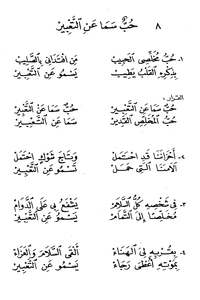 ٨ حُبٌّ سَمَا عَنِ التَّعْبِيرْ
١ـ حُبُّ مُخَلِّصِي الْحَبِيبْ مَنِ افْتَدَانِي بِالصَّلِيبْ
بِذِكْرِهِ الْقَلْبُ يَطِيبْ يَسْمُو عَنِ التَّعْبِيرْ
القرار
حُبٌّ سَمَا عَنِ التَّعْبِيرْ حُبٌّ سَمَا عَنِ التَّعْبِيرْ
حُبُّ الْمُخَلِّصِ الْقَدِيرْ سَمَا عَنِ التَّعْبِيرْ
٢ـ أَحْزَانَنَا قَدِ احْتَمَلْ وَتَاجَ شَوْكٍ احْتَمَلْ
آلَامُنَا الَّتِي حَمَلْ تَسْمُو عَنِ التَّعْبِيرْ
٣ـ فِي شَخْصِهِ كُلُّ السَّلَامْ يَشْفَعُ بِي عَلَى الدَّوَامْ
مُخَلِّصًا إِلَى التَّمَامْ يَسْمُو عَنِ التَّعْبِيرْ
٤ـ بِقُرْبِهِ لِيَ الْهَنَاءْ أَلْقَى السَّلَامَ وَالْعَزَاءْ
بِمَوْتِهِ أَعْطَى رَجَاءْ يَسْمُو عَنِ التَّعْبِيرْ